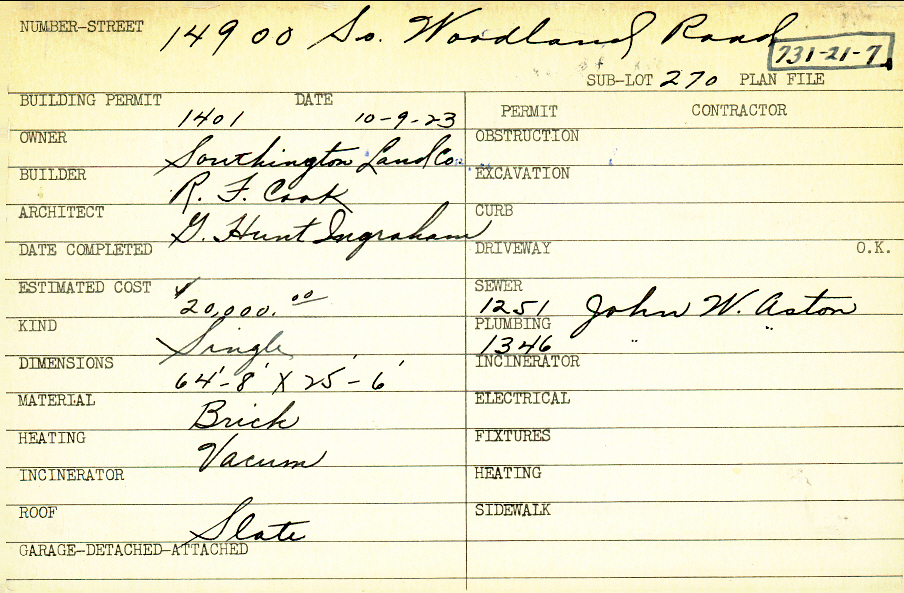 NUMBER-STREET 14900 So. Woodland Road
731-21-7
SUB-LOT 270 PLAN FILE
BUILDING PERMIT 1401 DATE 10-9-23
OWNER Southington Land Co.
BUILDER R. F. Cook
ARCHITECT G. Hunt Ingraham
DATE COMPLETED
ESTIMATED COST $20,000.00
KIND Single
DIMENSIONS 64'-8' X 25'-6'
MATERIAL Brick
HEATING Vacum
INCINERATOR
ROOF Slate
GARAGE-DETACHED-ATTACHED
PERMIT CONTRACTOR
OBSTRUCTION
EXCAVATION
CURB
DRIVEWAY O.K.
SEWER 1251 John W. Aston
PLUMBING 1346 " "
INCINERATOR
ELECTRICAL
FIXTURES
HEATING
SIDEWALK